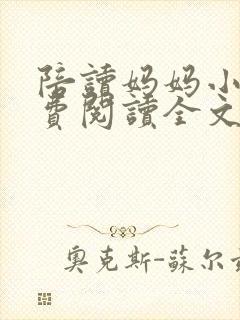 陪讀媽媽小
費閱讀全文
奧克斯-蘇尔